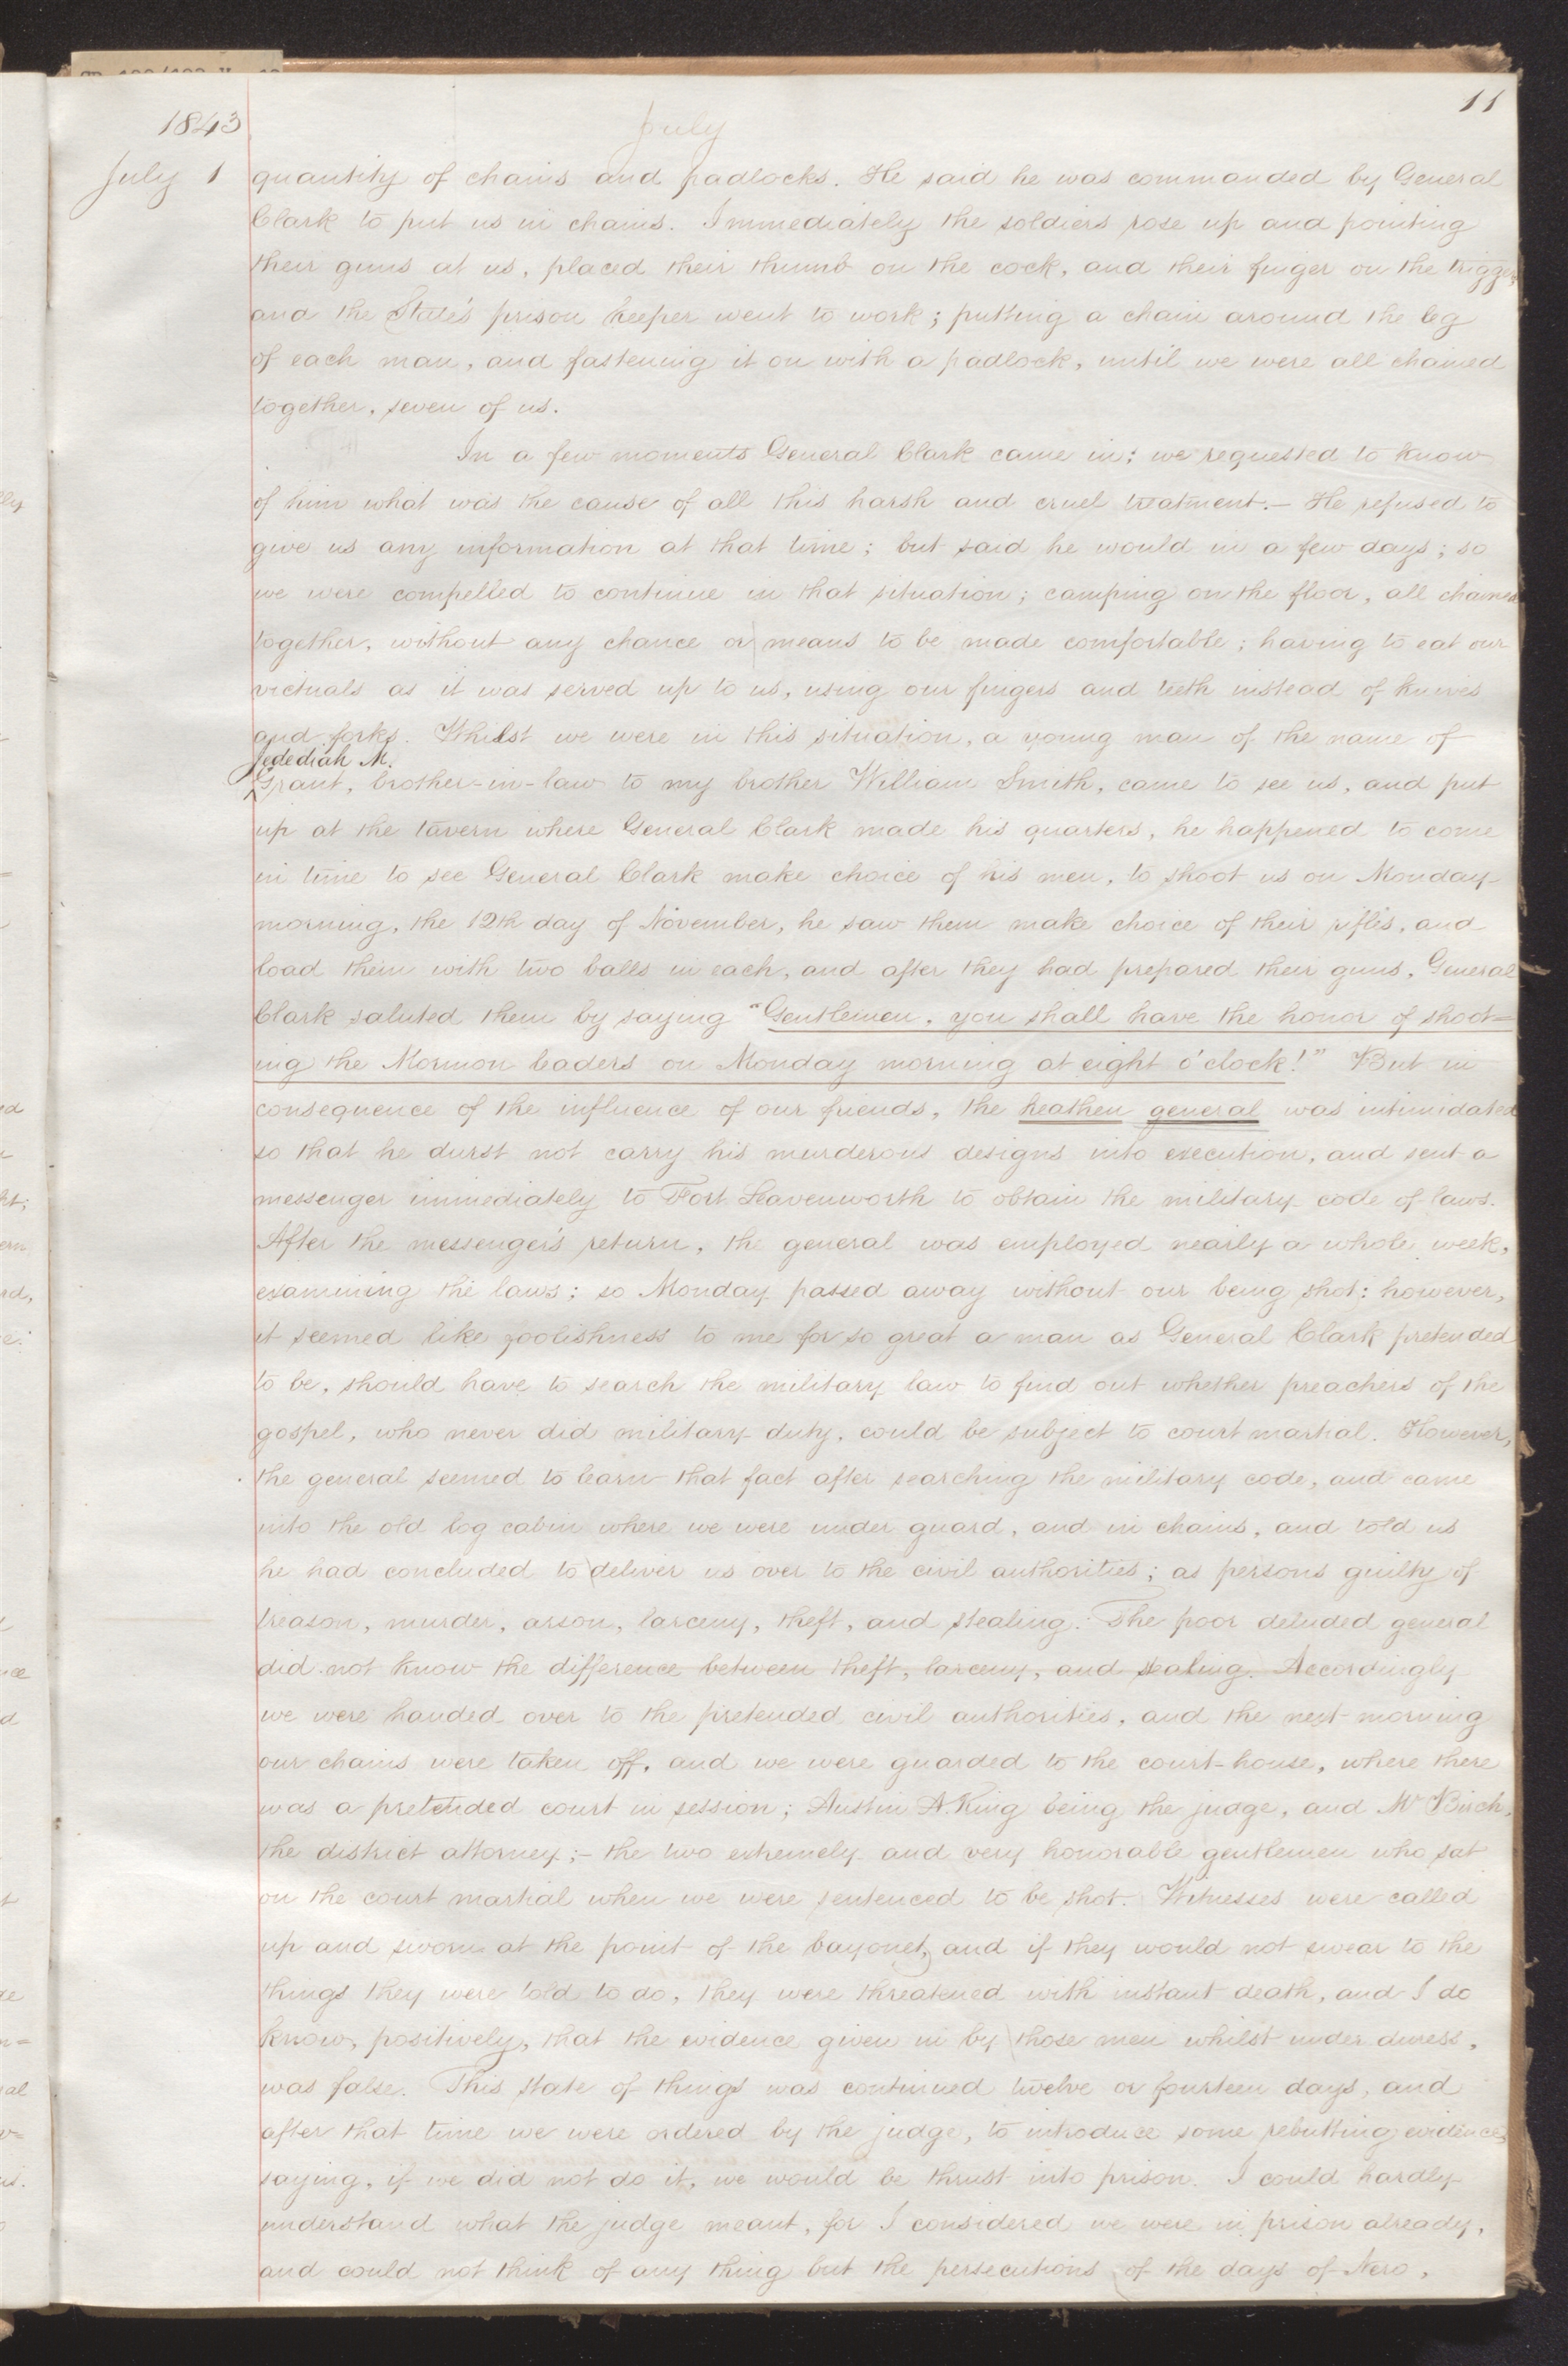 11
1843
July
July 1
quantity of chains and padlocks. He said he was commanded by General
Clark to put us in chains. Immediately the soldiers rose up and pointing
their guns at us, placed their thumb on the cock, and their finger on the trigger,
and the State's prison keeper went to work; putting a chain around the leg
of each man, and fastening it on with a padlock, until we were all chained
together, seven of us.
In a few moments General Clark came in; we requested to know
of him what was the cause of all this harsh and cruel treatment.— He refused to
give us any information at that time; but said he would in a few days; so
we were compelled to continue in that situation; camping on the floor, all chained
together, without any chance or means to be made comfortable; having to eat our
victuals as it was served up to us, using our fingers and teeth instead of knives
and forks. Whilst we were in this situation, a young man of the name of
Jedediah M.
Grant, brother-in-law to my brother William Smith, came to see us, and put
up at the tavern where General Clark made his quarters, he happened to come
in time to see General Clark make choice of his men, to shoot us on Monday
morning, the 12th day of November, he saw them make choice of their rifles, and
load them with two balls in each, and after they had prepared their guns, General
Clark saluted them by saying "Gentlemen, you shall have the honor of shoot=
ing the Mormon leaders on Monday morning at eight o'clock!" But in
consequence of the influence of our friends, the heathen general was intimidated
so that he durst not carry his murderous designs into execution, and sent a
messenger immediately to Fort Leavenworth to obtain the military code of laws.
After the messenger's return, the general was employed nearly a whole week,
examining the laws: so Monday passed away without our being shot: however,
it seemed like foolishness to me for so great a man as General Clark pretended
to be, should have to search the military law to find out whether preachers of the
gospel, who never did military duty, could be subject to court martial. However,
the general seemed to learn that fact after searching the military code, and came
into the old log cabin where we were under guard, and in chains, and told us
he had concluded to deliver us over to the civil authorities; as persons guilty of
treason, murder, arson, larceny, theft, and stealing. The poor deluded general
did not know the difference between theft, larceny, and stealing. Accordingly
we were handed over to the pretended civil authorities, and the next morning
our chains were taken off, and we were guarded to the court-house, where there
was a pretended court in session; Austin A. King being the judge, and Mr Birch,
the district attorney;— the two extremely and very honorable gentlemen who sat
on the court martial when we were sentenced to be shot. Witnesses were called
up and sworn at the point of the bayonet, and if they would not swear to the
things they were told to do, they were threatened with instant death, and I do
know, positively, that the evidence given in by those men whilst under duress,
was false. This state of things was continued twelve or fourteen days, and
after that time we were ordered by the judge, to introduce some rebutting evidence,
saying, if we did not do it, we would be thrust into prison. I could hardly
understand what the judge meant, for I considered we were in prison already,
and could not think of any thing but the persecutions of the days of Nero,